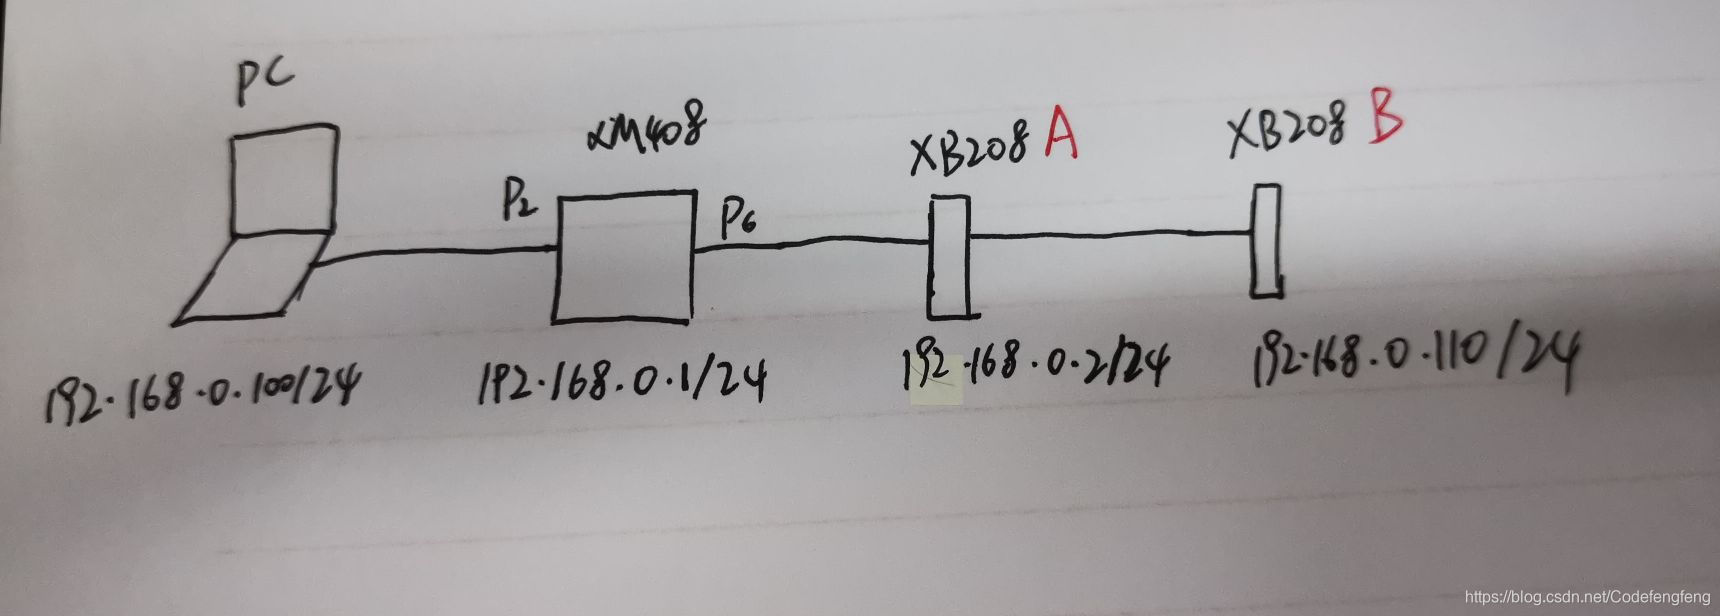 PC
XM408
XB208 A
XB208 B
P2
P6
192.168.0.100/24
192.168.0.1/24
192.168.0.2/24
192.168.0.110/24
https://blog.csdn.net/Codefengfeng